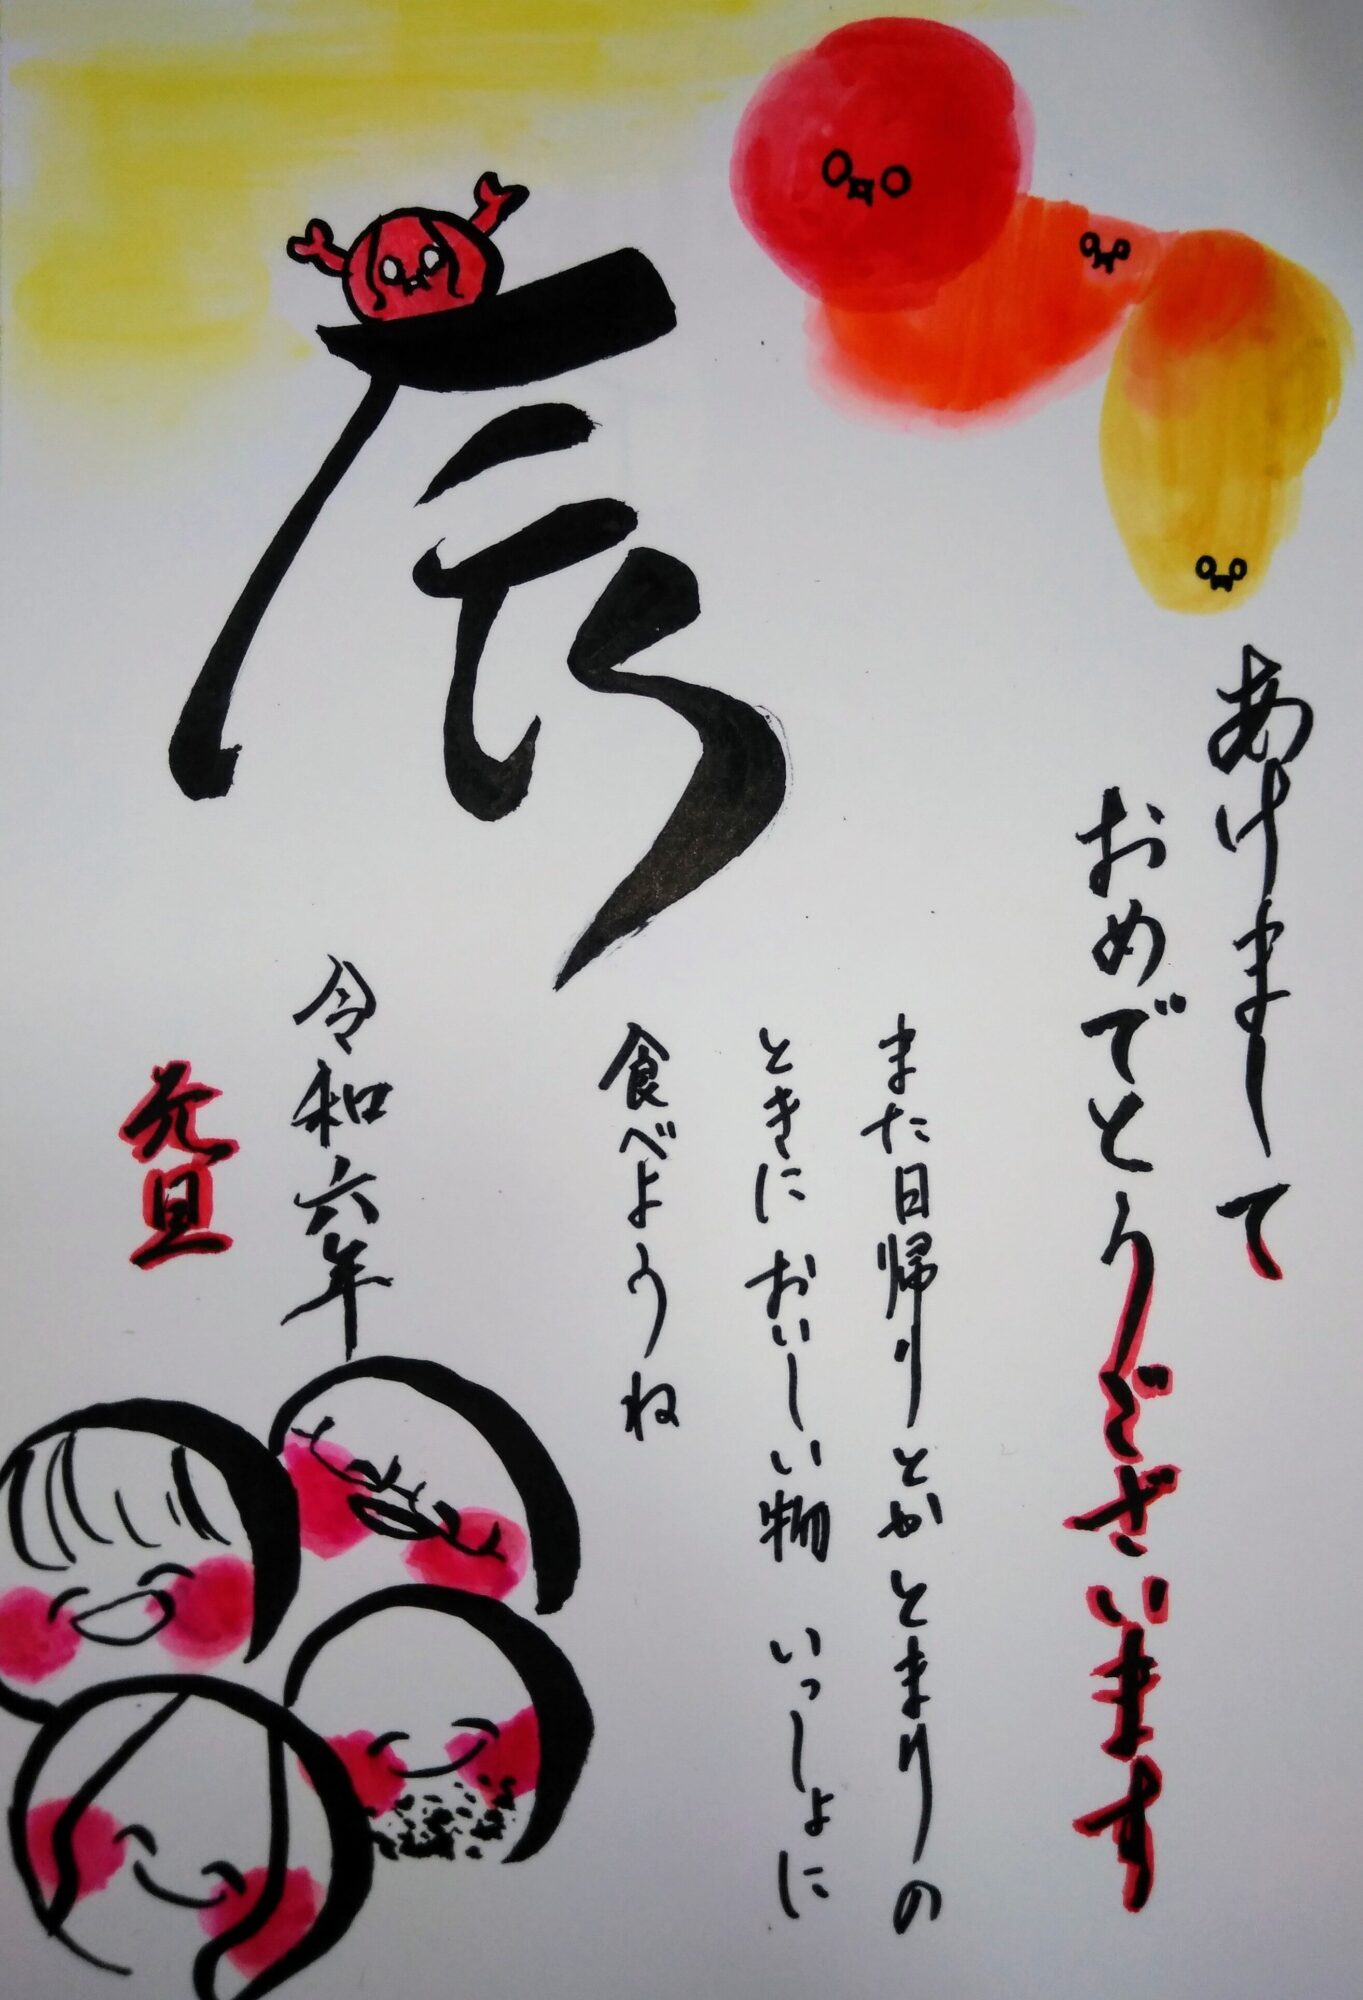 あけまして
おめでとうございます
また日帰りとかとまりの
ときにおいしい物 いっしょに
食べようね
辰
令和六年
元旦